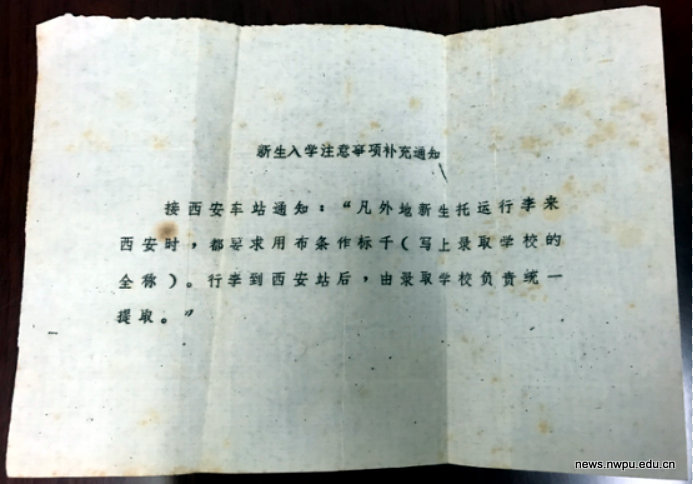 新生入学注意事项补充通知
接西安车站通知：“凡外地新生托运行李来
西安时，都要求用布条作标千（写上录取学校的
全称）。行李到西安站后，由录取学校负责统一
提取。”
news.nwpu.edu.cn